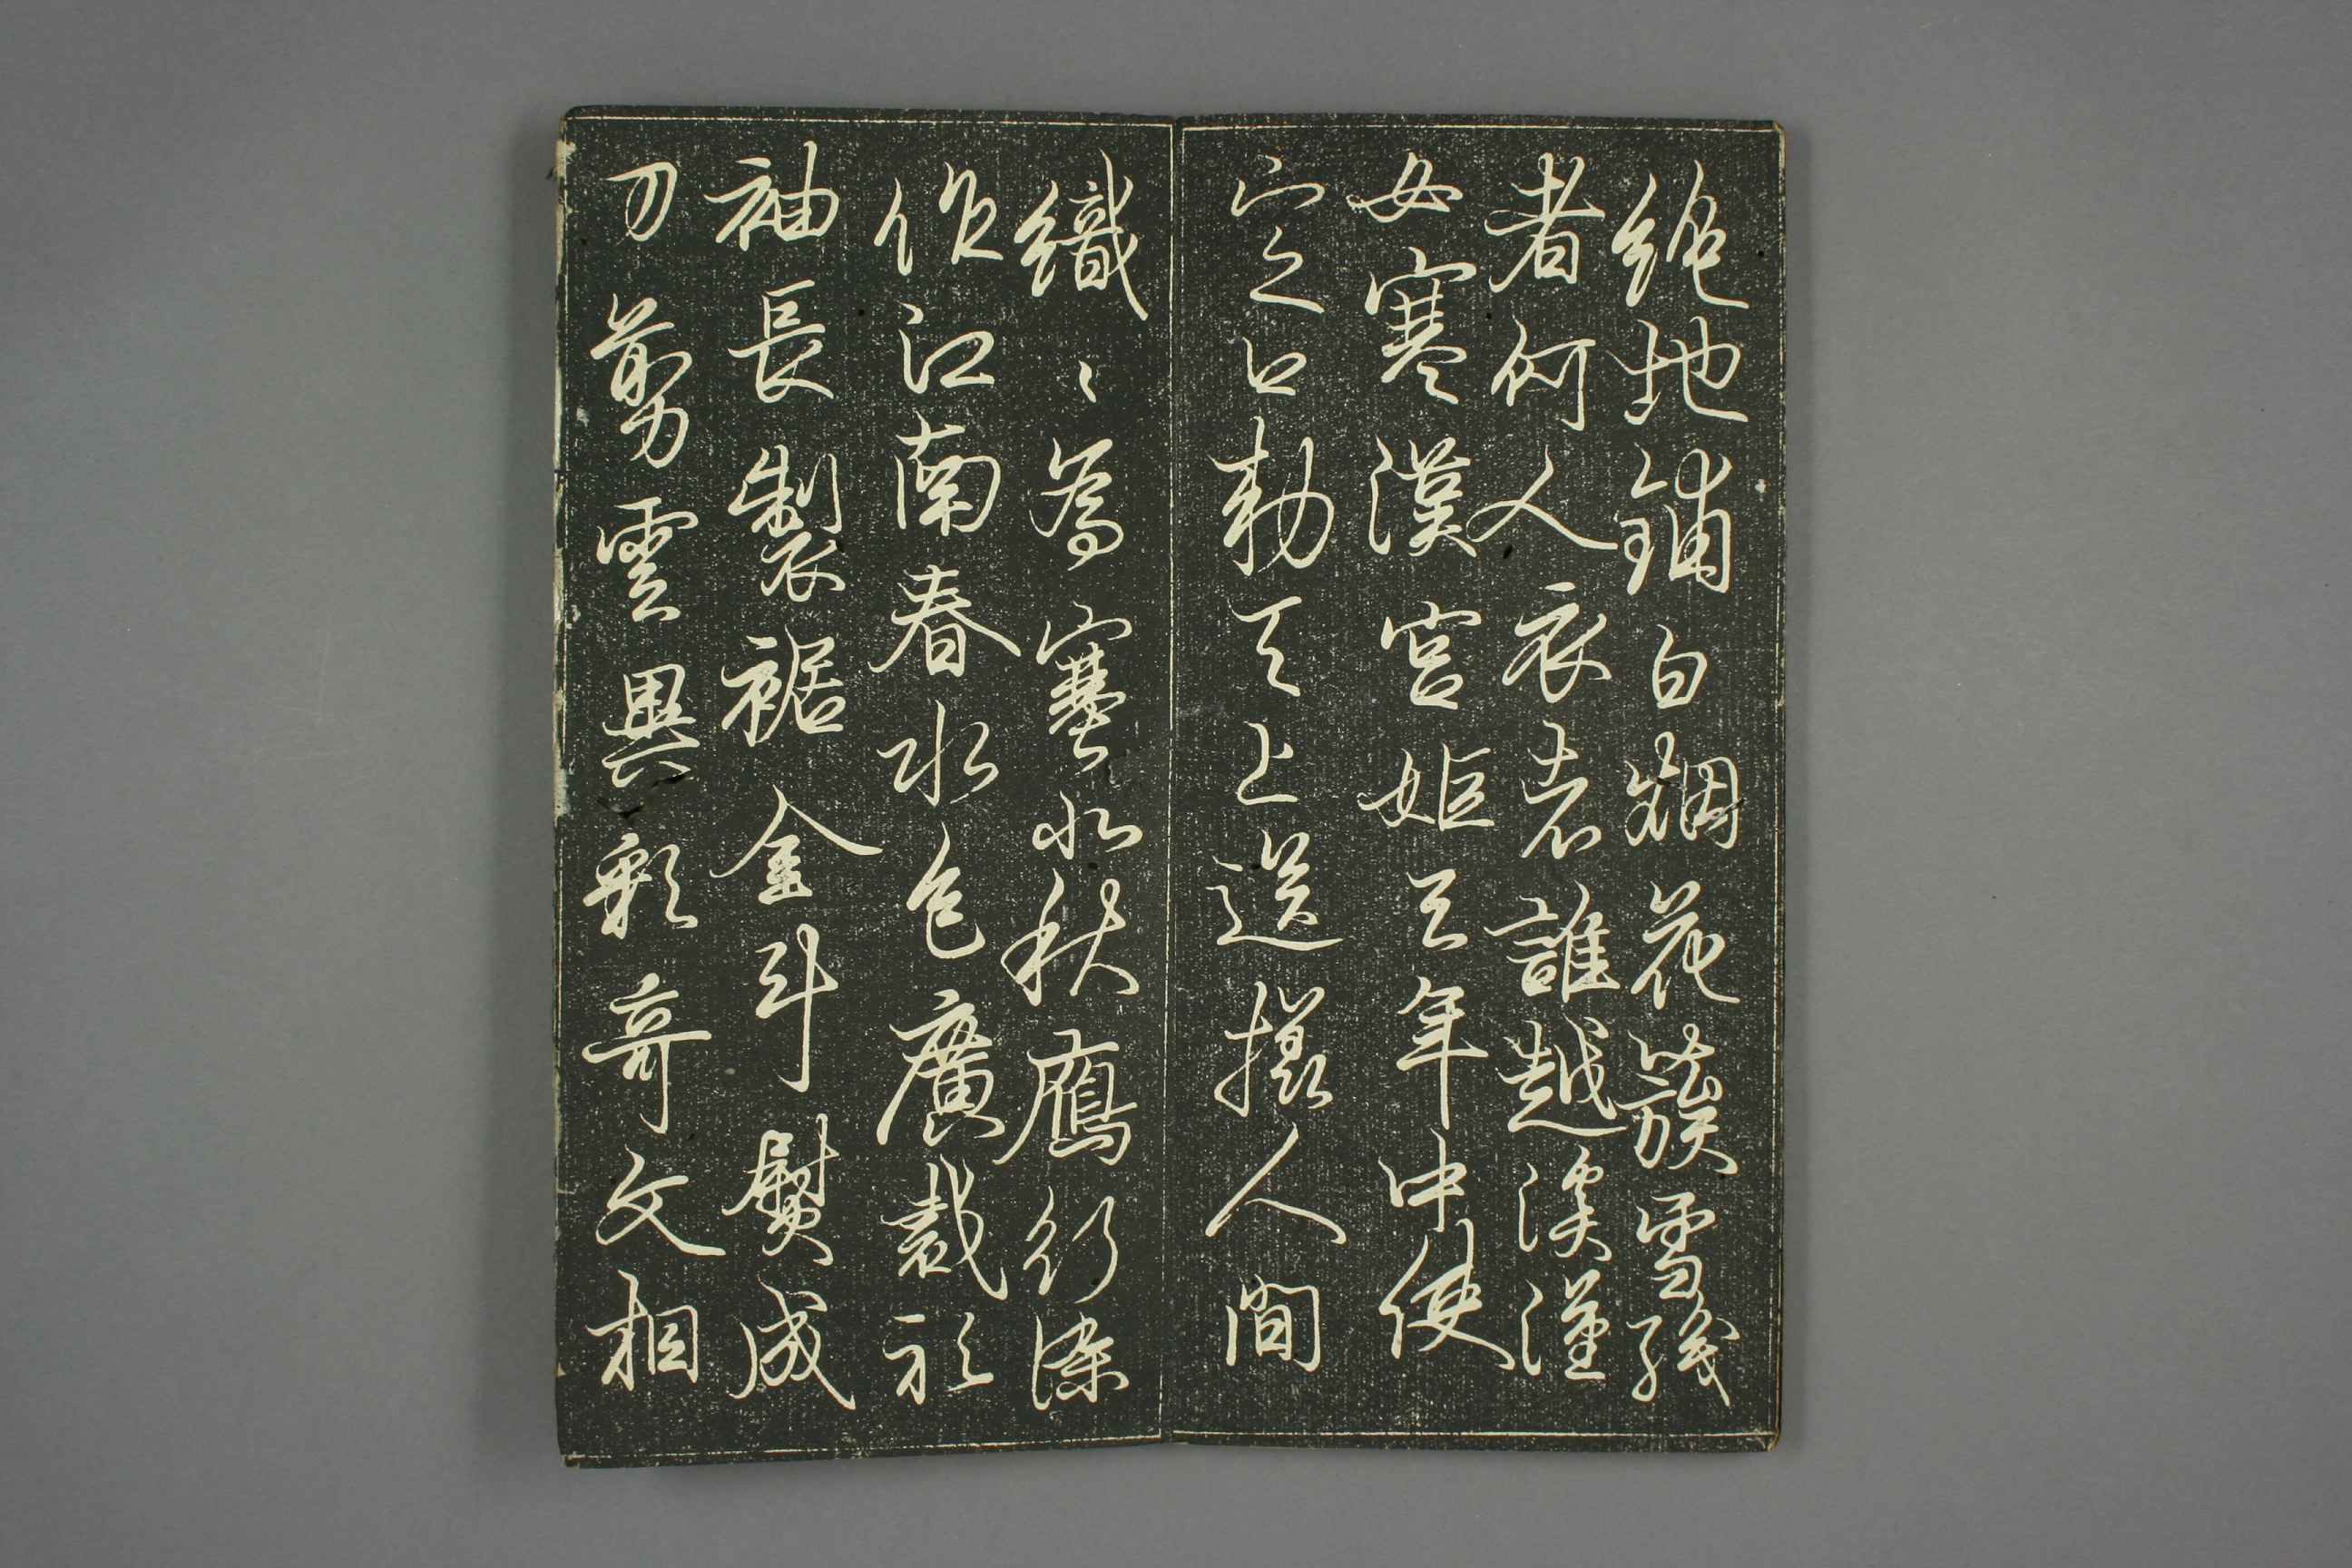 絶地鋪白烟花簇雪織
者何人衣者誰越溪漢
女寒漢宮姫去年中使
宣口勅天上送樣人間
織〻為塞北秋鴈行染
作江南春水色廣裁衫
袖長製裾金斗熨成
刀剪雲異彩奇文相